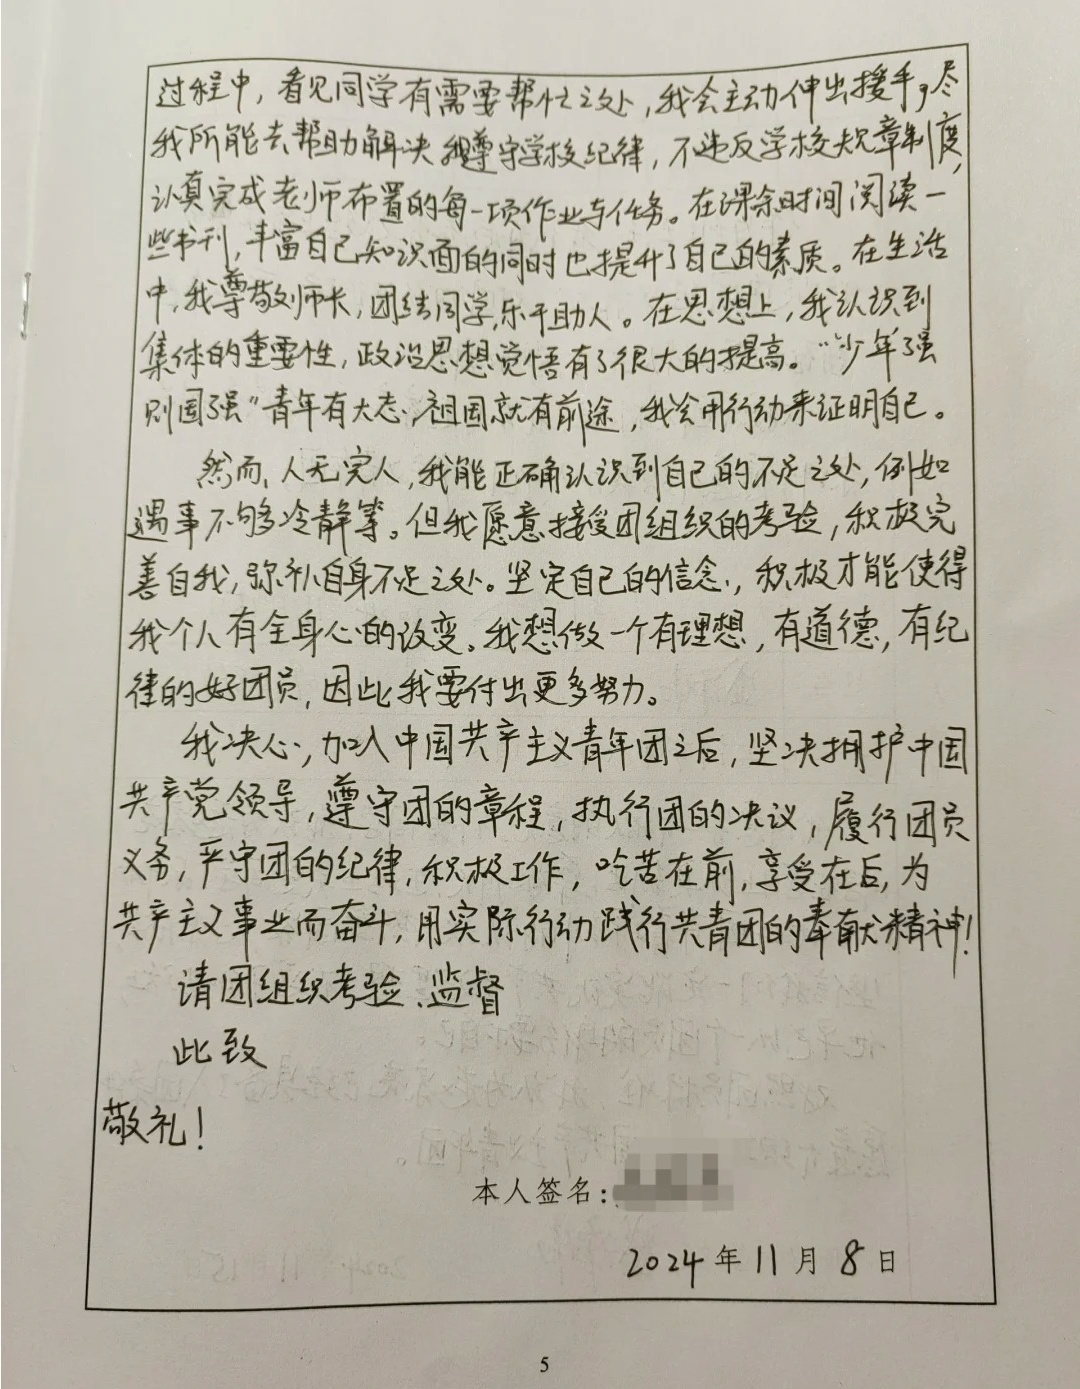 过程中，看见同学有需要帮忙之处，我会主动伸出援手，尽
我所能去帮助解决。我遵守学校纪律，不违反学校规章制度，
认真完成老师布置的每一项作业与任务。在课余时间阅读一
些书刊，丰富自己知识面的同时也提升了自己的素质。在生活
中，我尊敬师长，团结同学，乐于助人。在思想上，我认识到
集体的重要性，政治思想觉悟有了很大的提高。“少年强
则国强”青年有大志，祖国就有前途，我会用行动来证明自己。
然而，人无完人，我能正确认识到自己的不足之处，例如
遇事不够冷静等。但我愿意接受团组织的考验，积极完
善自我，弥补自身不足之处。坚定自己的信念，积极才能使得
我个人有全身心的改变。我想做一个有理想，有道德，有纪
律的好团员，因此我要付出更多努力。
我决心，加入中国共产主义青年团之后，坚决拥护中国
共产党领导，遵守团的章程，执行团的决议，履行团员
义务，严守团的纪律，积极工作，吃苦在前，享受在后，为
共产主义事业而奋斗，用实际行动践行共青团的奉献精神！
请团组织考验、监督
此致
敬礼！
本人签名：
2024年11月8日
5